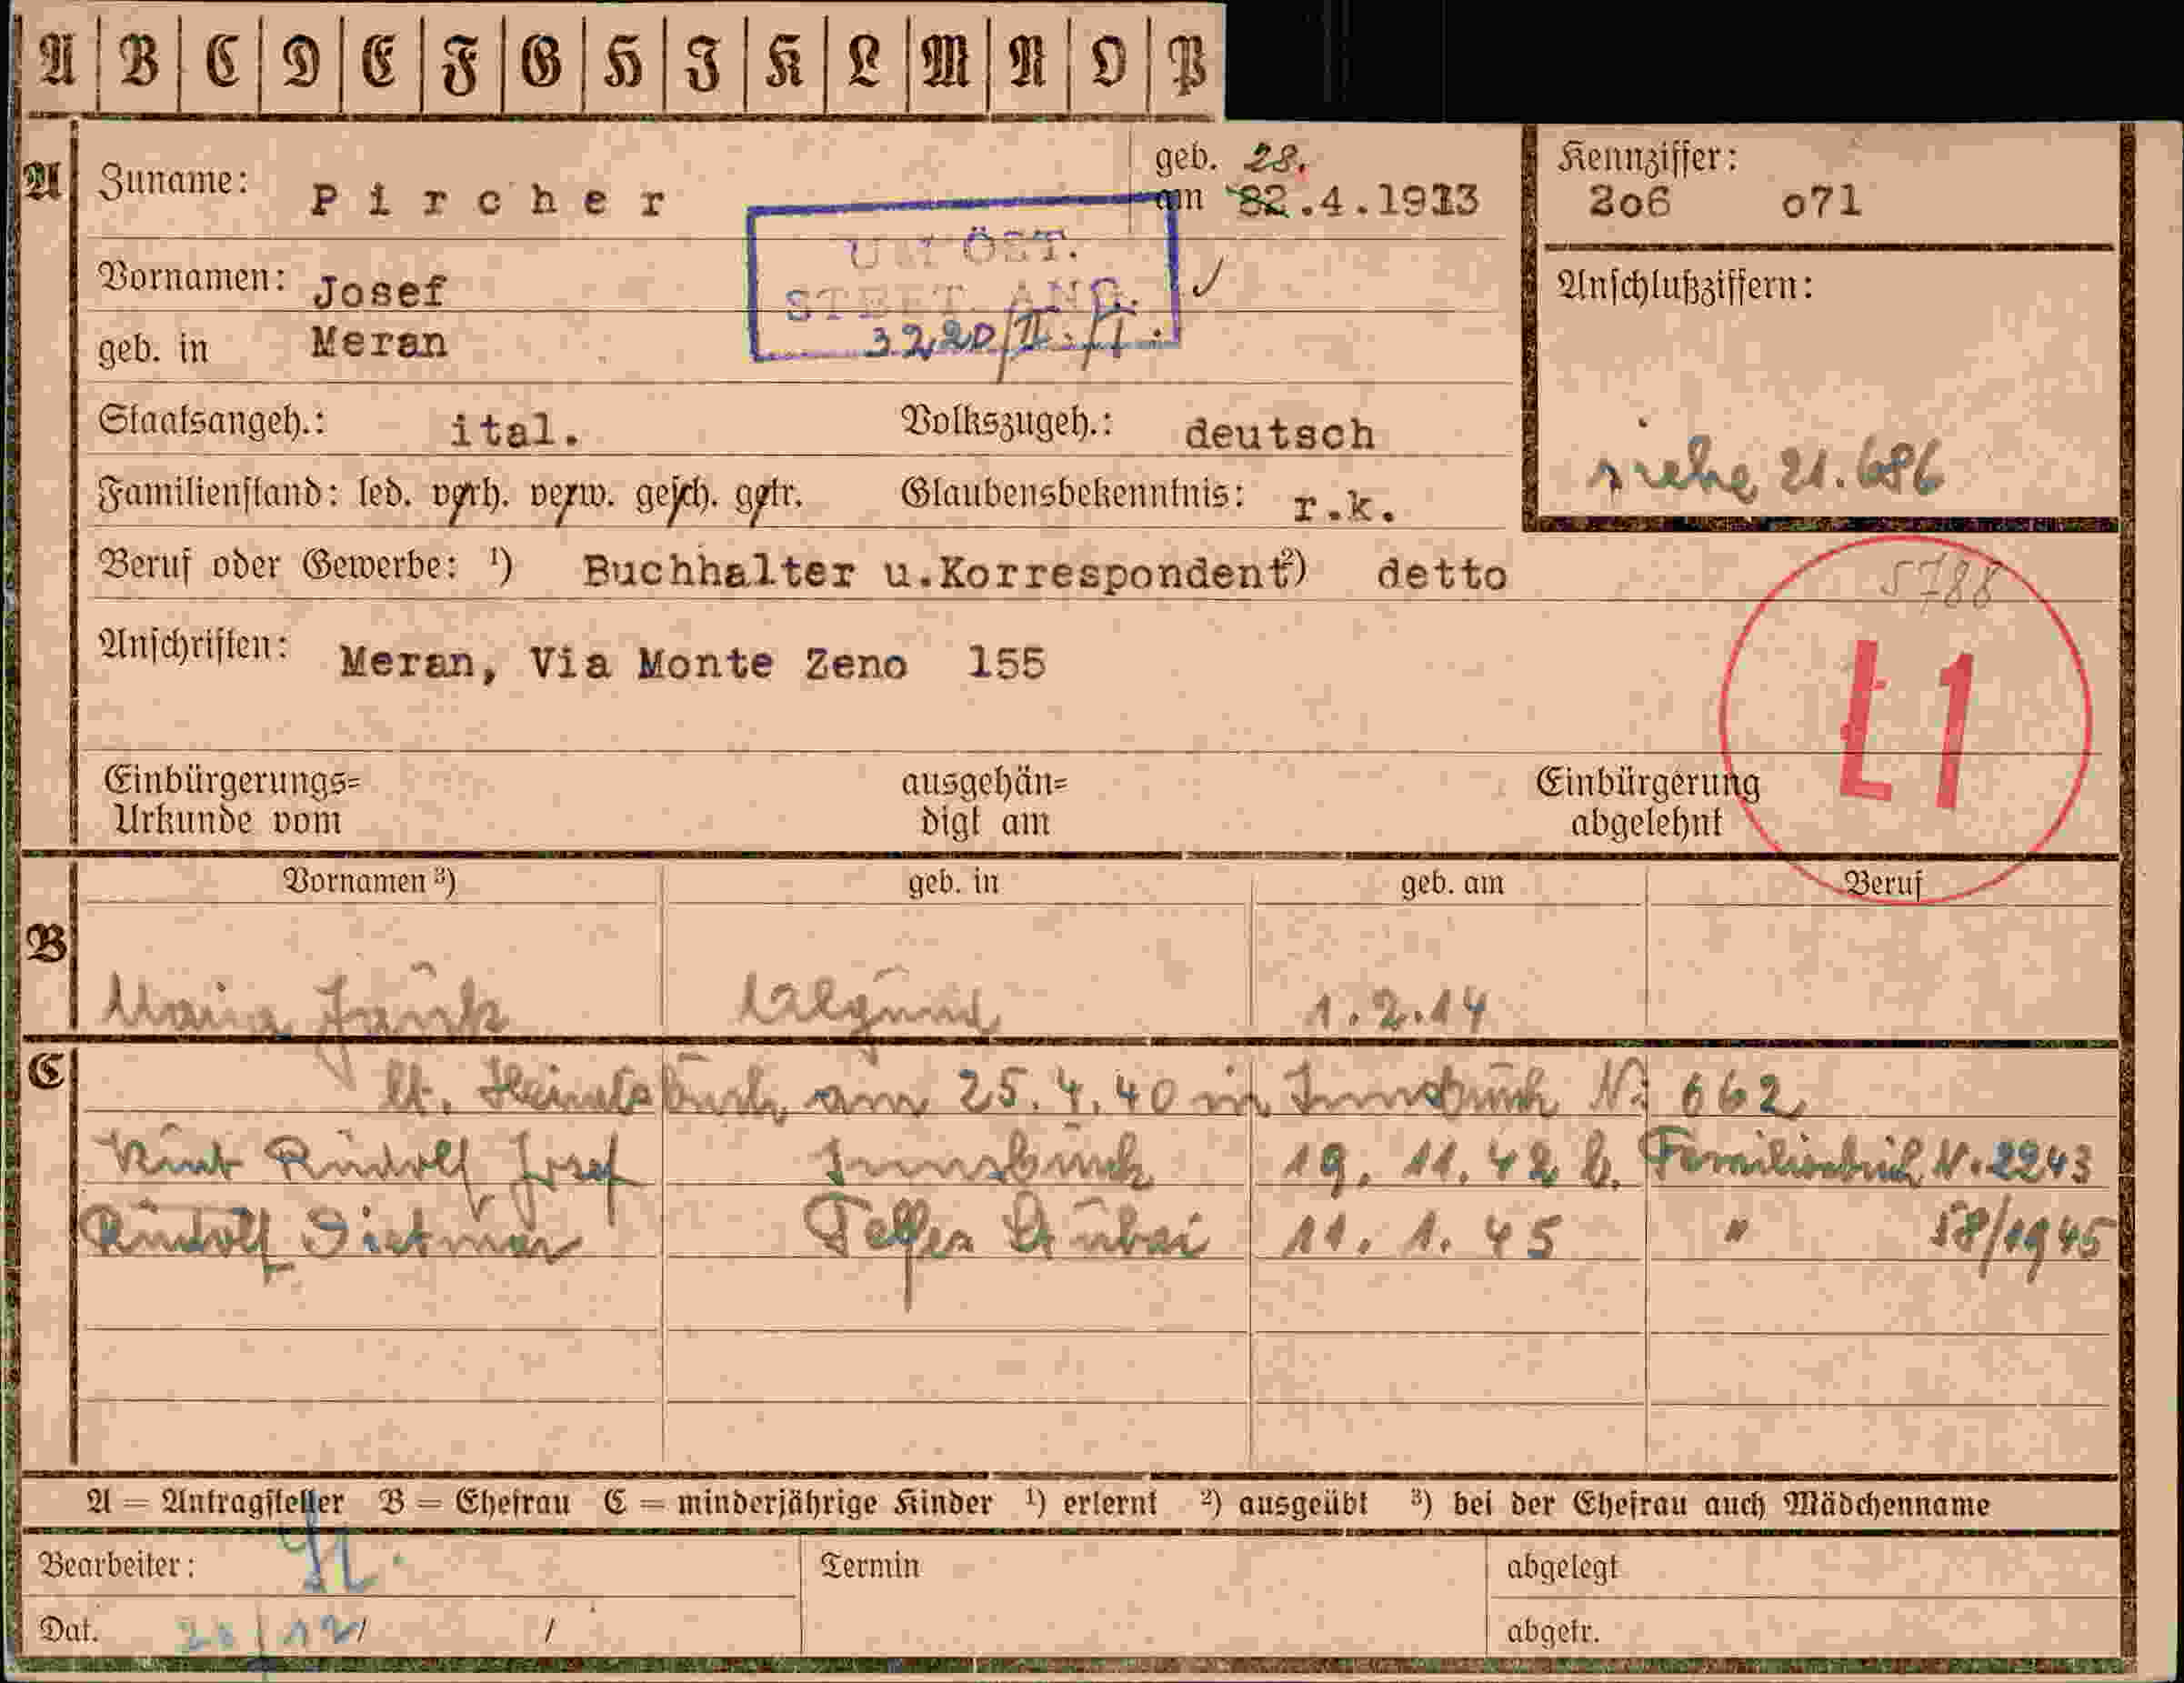 A B C D E F G H I K L M N O P
A Zuname: Pircher geb. 28. am 82.4.1913
Kennziffer: 206 071
Vornamen: Josef
UM ÖST. STBFT. ANG. 3220/II./I.
Anschlußziffern:
geb. in Meran
Staatsangeh.: ital. Volkszugeh.: deutsch
siehe 21.686
Familienstand: led. verh. verw. gesch. getr. Glaubensbekenntnis: r.k.
Beruf oder Gewerbe: ¹) Buchhalter u.Korrespondent ²) detto
5788
Anschriften: Meran, Via Monte Zeno 155
L1
Einbürgerungs= ausgehän= Einbürgerung
Urkunde vom digt am abgelehnt
Vornamen ³) geb. in geb. am Beruf
B
Maria Algund 1.2.14
C
lt. Heiratsbuch am 25.4.40 in Innsbruck N: 662
Kurt Rudolf Josef Innsbruck 19. 11. 42 l. Familienbuch N. 2243
Rudolf Dietmar Telfes Stubai 11. 1. 45 " 58/1945
A = Antragsteller B = Ehefrau C = minderjährige Kinder ¹) erlernt ²) ausgeübt ³) bei der Ehefrau auch Mädchenname
Bearbeiter: Termin abgelegt
Dat. / / abgetr.